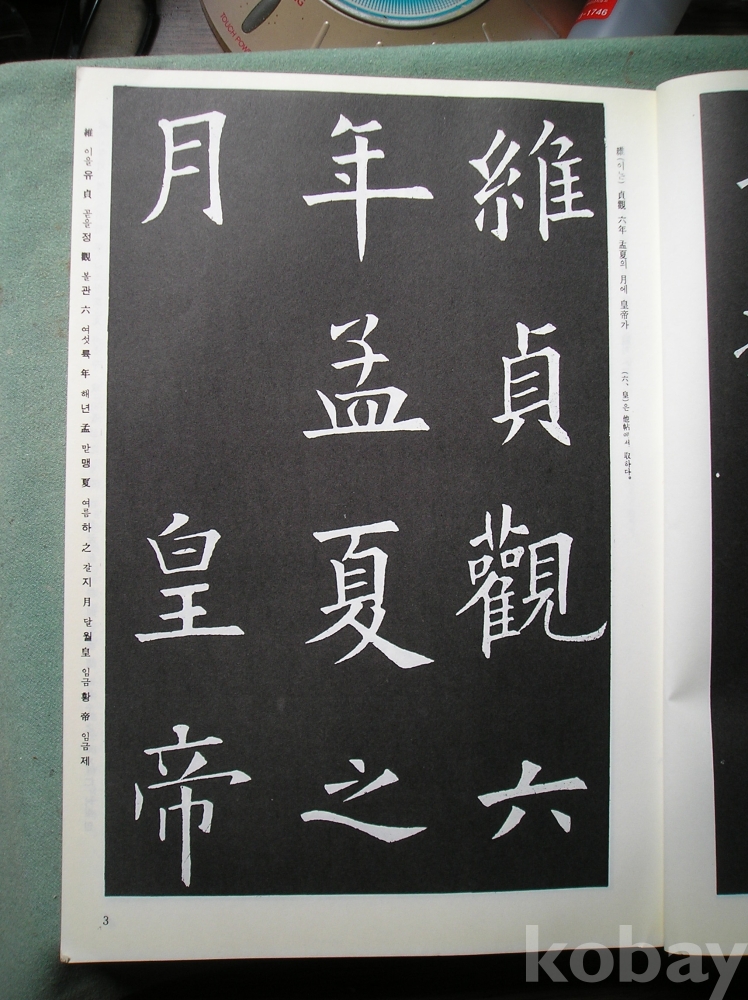 維貞觀六
年孟夏之
月 皇帝
維(이는) 貞觀 六年 孟夏의 月에 皇帝가
(六、皇)은 他帖에서 取하다。
維 이을 유 貞 곧을 정 觀 볼 관 六 여섯 륙 年 해 년 孟 맏 맹 夏 여름 하 之 갈 지 月 달 월 皇 임금 황 帝 임금 제
3
TOUCH POW
-1746
kobay